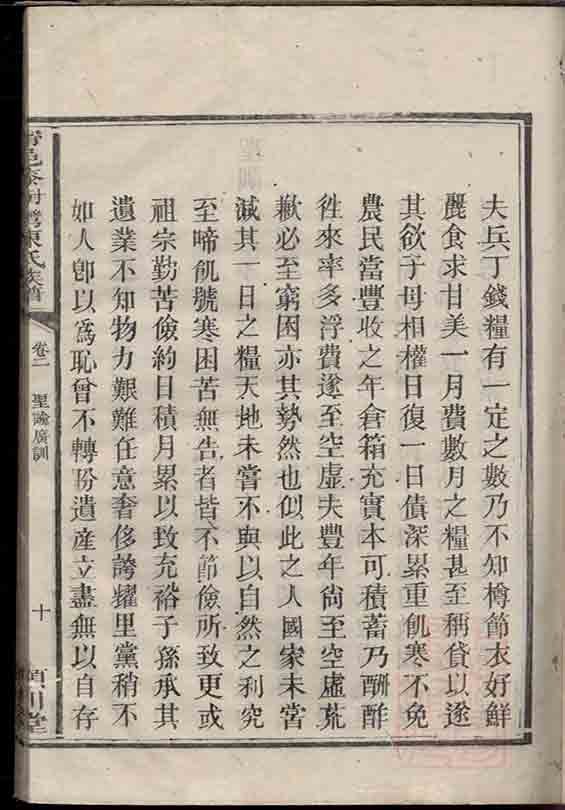 夫兵丁錢糧有一定之數乃不知樽節衣好鮮
麗食求甘美一月費數月之糧甚至稱貸以遂
其欲子母相權日復一日債深累重飢寒不免
農民當豐收之年倉箱充實本可積蓄乃酬酢
徃來率多浮費遂至空虛夫豐年尙至空虛荒
歉必至窮困亦其勢然也似此之人國家未嘗
減其一日之糧天地未嘗不與以自然之利究
至啼飢號寒困苦無告者皆不節儉所致更或
祖宗勤苦儉約日積月累以致充裕子孫承其
遺業不知物力艱難任意奢侈誇耀里黨稍不
如人卽以爲恥曾不轉盼遺產立盡無以自存
陳氏族譜
卷二
聖諭廣訓
十
潁川堂